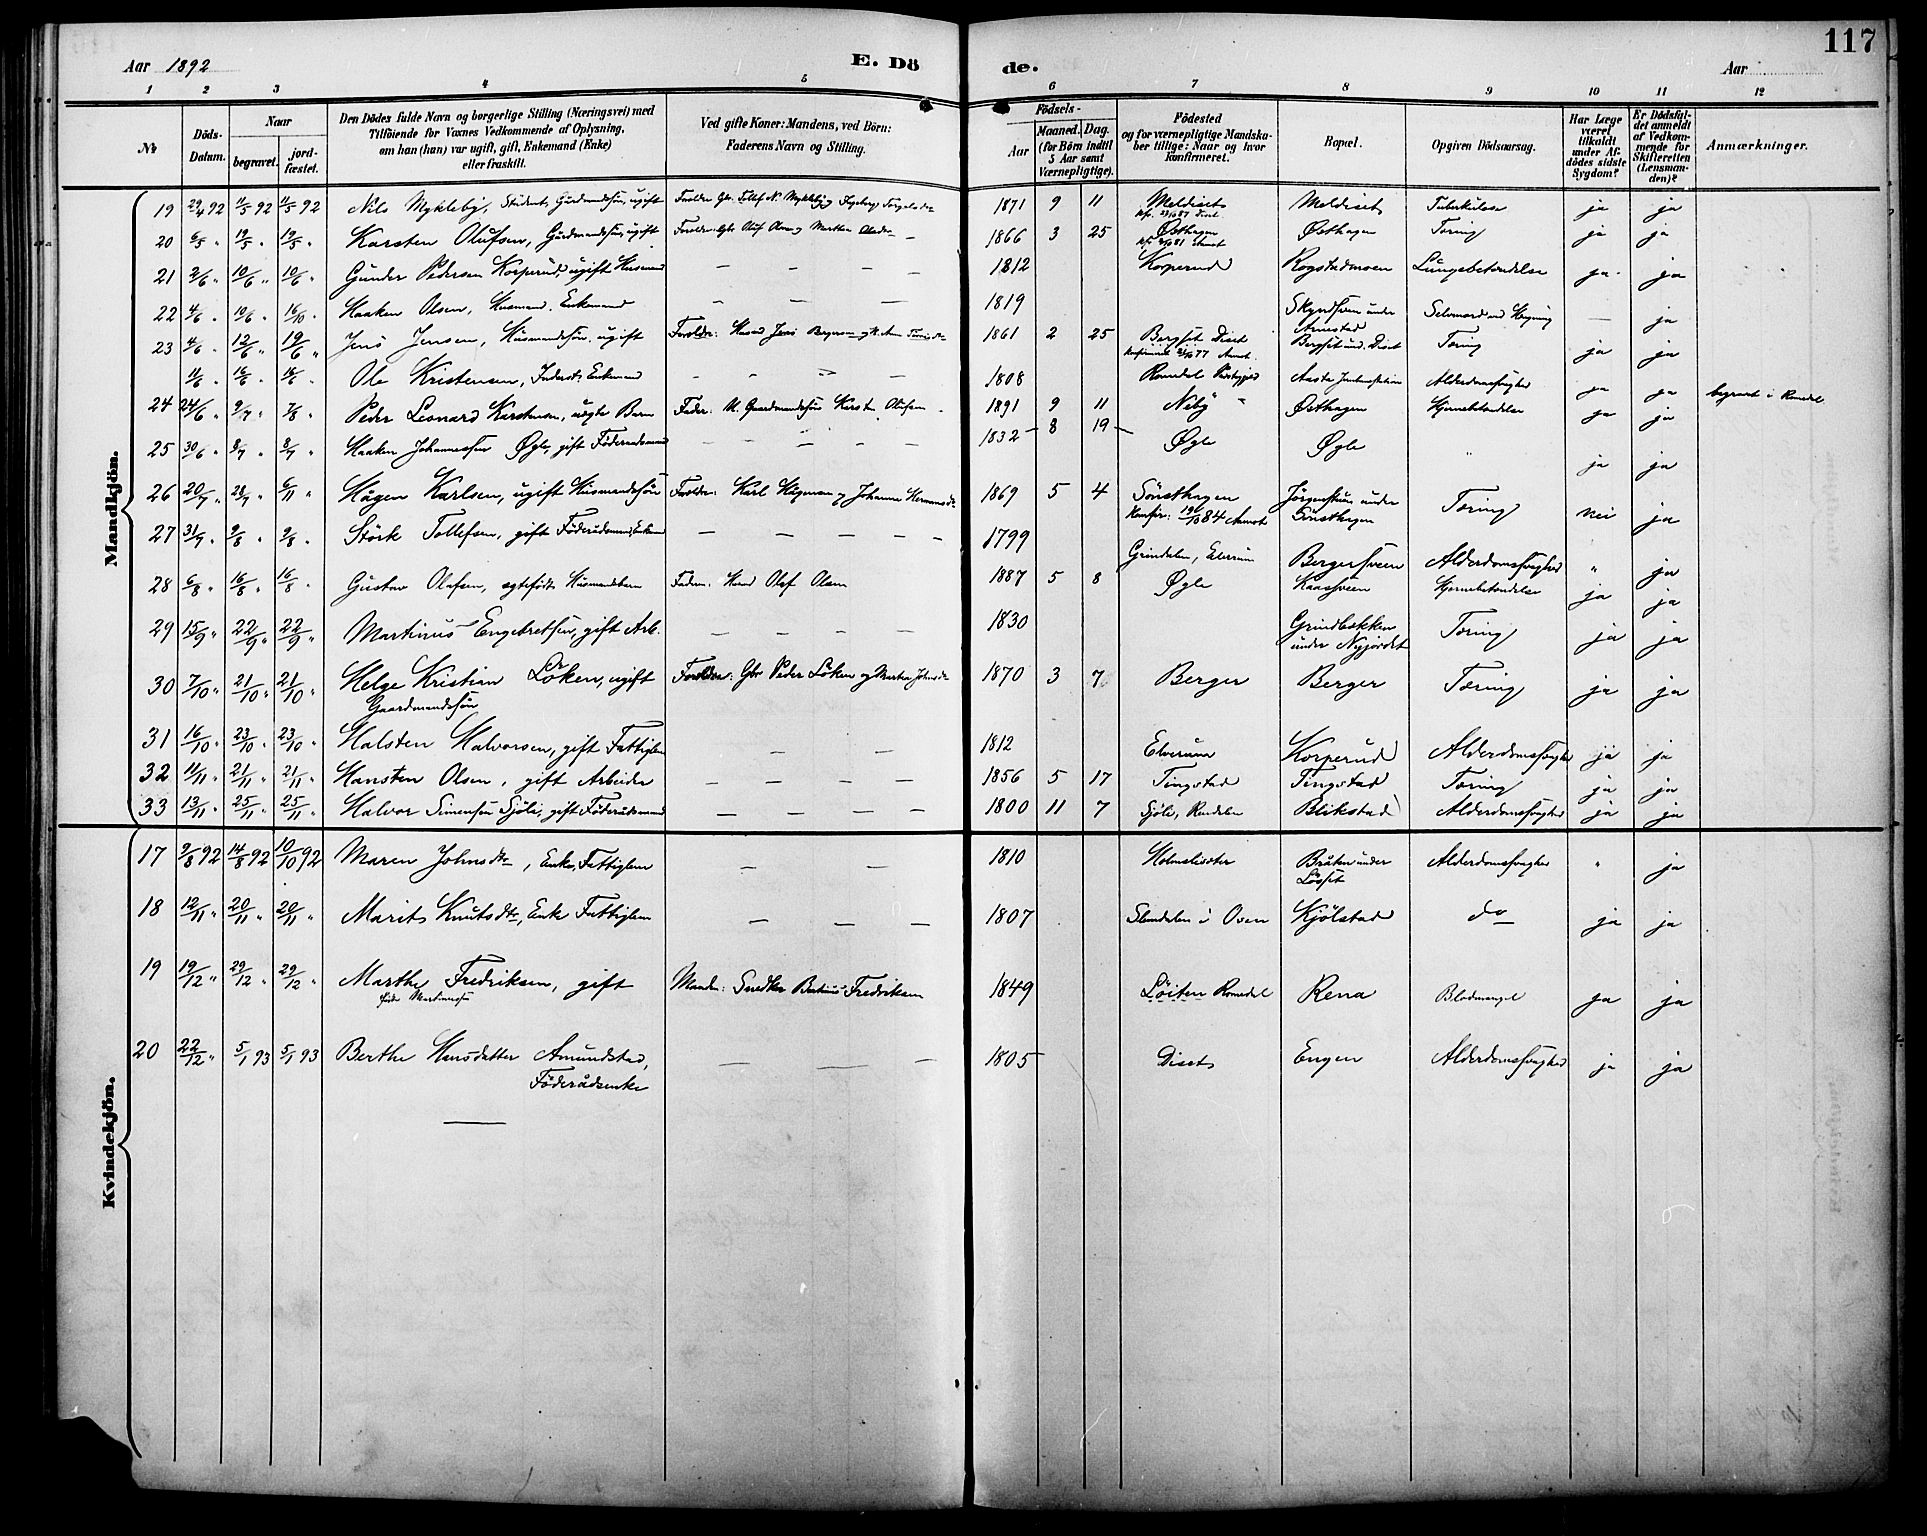 117
Aar 1892 E. Dö de. Aar
1 2 3 4 5 6 7 8 9 10 11 12
№ Döds-Datum. Naar begravet. jordfæstet. Den Dödes fulde Navn og borgerlige Stilling (Næringsvei) med Tilföiende for Voxnes Vedkommende af Oplysning, om han (hun) var ugift, gift, Enkemand (Enke) eller fraskilt. Ved gifte Koner: Mandens, ved Börn: Faderens Navn og Stilling. Födsels- Aar Maaned. Dag. (for Börn indtil 5 Aar samt Værnepligtige). Födested og for værnepligtige Mandskaber tillige: Naar og hvor konfirmeret. Bopæl. Opgiven Dödsaarsag. Har Læge været tilkaldt under Afdödes sidste Sygdom? Er Dödsfaldet anmeldt af Vedkommende for Skifteretten (Lensmanden)? Anmærkninger.
Mandkjön.
19 29/4 92 11/5 92 11/5 92 Nils Mykleby, Student, Gaardmandssön, ugift 1871 9 11 Meldiset Meldiset Tuberkulose ja ja
20 6/5 " 19/5 " 19/5 " Karsten Olufsen, Gaardmandssön, ugift 1866 3 25 Østhagen Østhagen Tæring ja ja
21 2/6 " 10/6 " 10/6 " Gunder Pedersen Korperud, ugift Husmand — — — — 1812 Korperud Rogstadmoen Lungebetændelse ja ja
22 4/6 " 10/6 " 16/10 " Haaken Olsen, Husmand, Enkemand — — — 1819 Skyndsveen under Arnestad Selvmord ved Hængning — ja
23 4/6 " 12/6 " 19/6 " Jens Jensen, Husmandssön, ugift 1861 2 25 Bergset Diset Bergset und. Diset Tæring ja ja
11/6 " 16/6 " 16/6 " Ole Kristensen, Inderst, Enkemand — — — — 1808 Romedal Præstegjeld Aasta Jernbanestation Alderdomssvaghed ja ja begravet i Romedal
24 24/6 " 9/7 " 7/8 " Peder Leonard Karstensen, uægte Barn Fader: U. Gaardmandssön Karsten Olufsen 1891 9 11 Neby Østhagen Hjernebetændelse ja ja
25 30/6 " 8/7 " 8/7 " Haaken Johannessen Øgle, gift Föderaadsmand — — — — — 1832 8 19 Øgle Øgle " ja ja
26 20/7 " 28/7 " 6/11 " Hagen Karlsen, ugift Husmandssön 1869 5 4 Sönsthagen Konfir: 19/10 84 Aamot Jörgenstuen under Sönsthagen Tæring nei ja
27 31/7 " 9/8 " 9/8 " Störk Tollefsen, gift Föderaadsmand, Enkem — — — — — 1799 Grindalen, Elverum Bergersveen Alderdomssvaghed " ja
28 6/8 " 16/8 " 16/8 " Gustav Olafsen, ægtefödt Husmandsbarn Faderen: Husmd Olaf Olsen 1887 5 8 Øgle Kaasveen Hjernebetændelse ja ja
29 15/9 " 22/9 " 22/9 " Martinus Engebretsen, gift Arb. — — — — 1830 Grindbækken under Nyjordet Tæring ja ja
30 7/10 " 21/10 " 21/10 " Helge Kristian Löken, ugift Gaardmandssön Forældre: Gbr Peder Löken og Marthe Johnsdtr 1870 3 7 Berger Berger Tæring ja ja
31 16/10 " 23/10 " 23/10 " Halsten Halvorsen, gift Fattiglem — — — 1812 Elverum Korperud Alderdomssvaghed ja ja
32 11/11 " 21/11 " 21/11 " Hansten Olsen, gift Arbeider — — — — 1856 5 17 Tingstad Tingstad Tæring ja ja
33 13/11 " 25/11 " 25/11 " Halvor Simensen Sjöli, gift Föderaadsmand — — — — 1800 11 7 Sjöli, Rendalen Blikstad Alderdomssvaghed ja ja
Kvindekjön.
17 9/8 92 14/8 92 10/10 92 Maren Johnsdtr, Enke, Fattiglem — — — 1810 Holmeliseter Bråten under Lösset Alderdomssvaghed " ja
18 12/11 " 20/11 " 20/11 " Marit Knutsdtr, Enke Fattiglem — — — 1807 Slemdalen i Osen Kjölstad do ja ja
19 19/12 " 29/12 " 29/12 " Marthe Fredriksen, gift Manden: Snedker Bertinus Fredriksen 1849 Löiten Romedal Rena Blodmangel ja ja
född Martinussen
20 22/12 " 5/1 93 5/1 93 Berthe Hansdatter Amundstad, Föderådsenke — — — 1805 Diset Engen Alderdomssvaghed ja ja